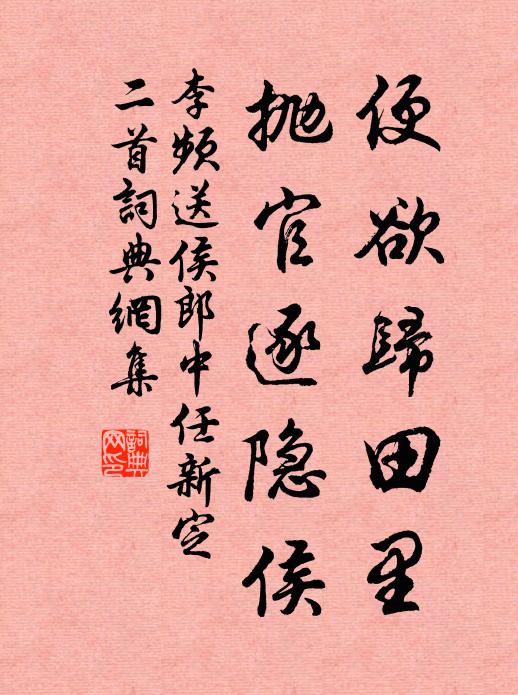 便欲歸田里
抛官逐隐侯
李頻送侯郎中任新定
二首詞典網集
詞典網印